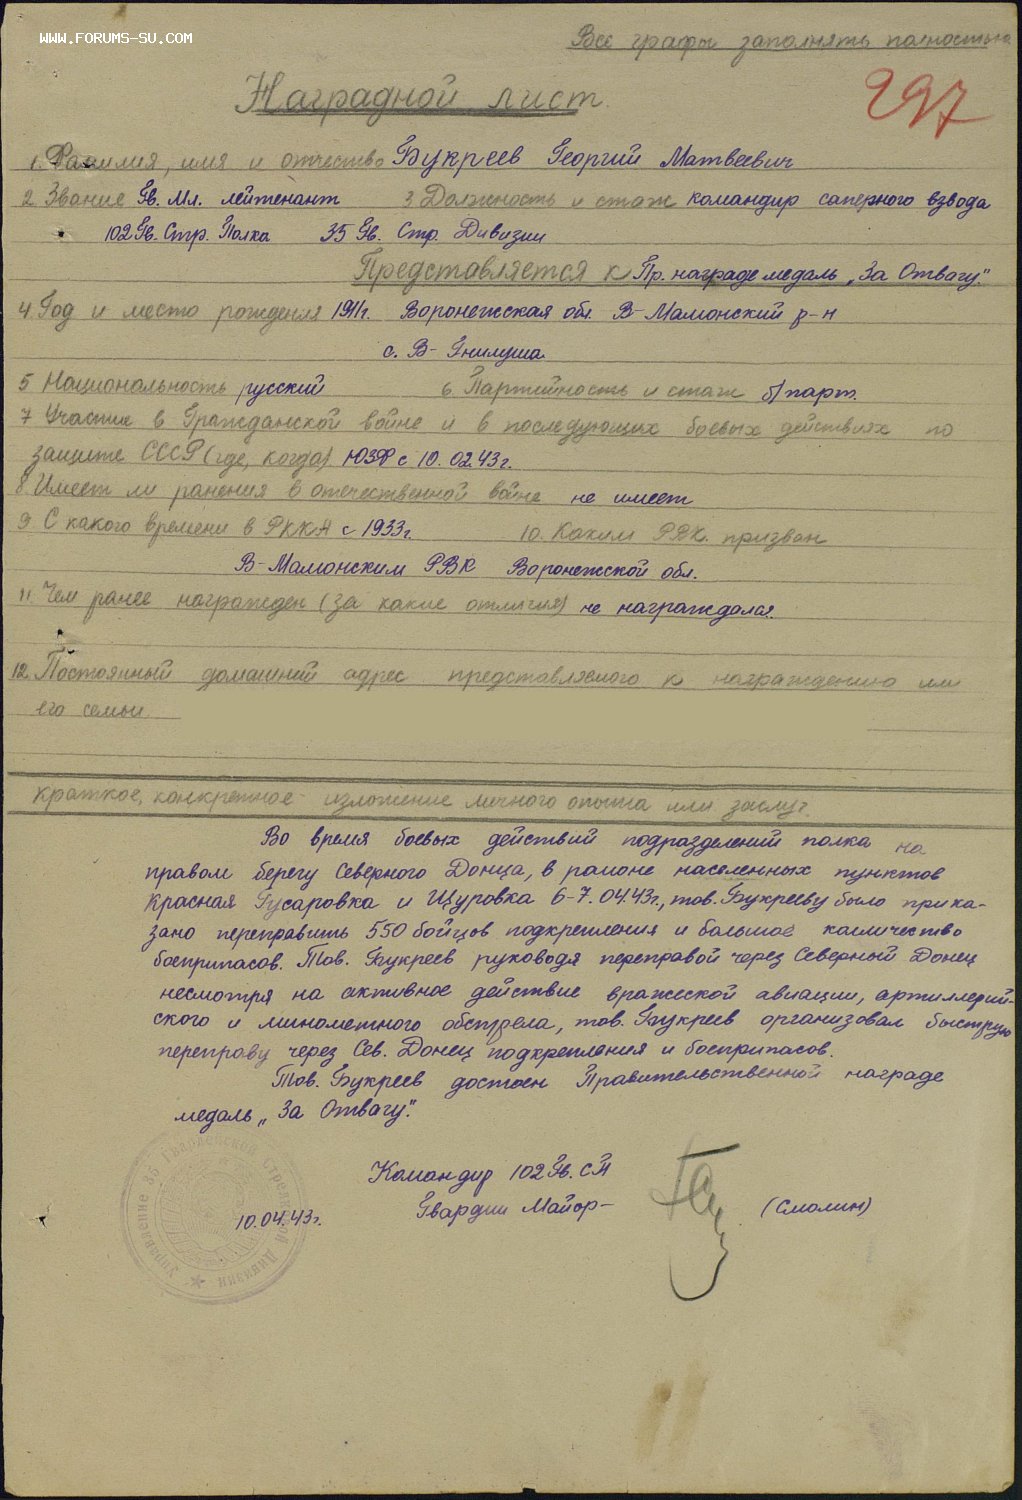 WWW.FORUMS-SU.COM
Все графы заполнять полностью
297
Наградной лист.
1. Фамилия, имя и отчество Букреев Георгий Матвеевич
2 Звание Гв. Мл. лейтенант 3 Должность и стаж командир саперного взвода
102 Гв. Стр. Полка 35 Гв. Стр. Дивизии
Представляется к Пр. награде медаль „За Отвагу".
4. Год и место рождения 1911г. Воронежская обл. В-Мамонский р-н
с. В-Гнилуша.
5 Национальность русский 6. Партийность и стаж б/парт.
7 Участие в Гражданской войне и в последующих боевых действиях по
защите СССР (где, когда) ЮЗФ с 10.02.43г.
8 Имеет ли ранения в отечественной войне не имеет
9. С какого времени в РККА с 1933г. 10. Каким РВК. призван
В-Мамонским РВК Воронежской обл.
11. Чем ранее награжден (за какие отличия) не награждался.
12. Постоянный домашний адрес представляемого к награждению или
его семьи.
Краткое, конкретное изложение личного опыта или заслуг.
Во время боевых действий подразделений полка на
правом берегу Северного Донца, в районе населенных пунктов
Красная Гусаровка и Щуровка 6-7.04.43г., тов. Букрееву было прика-
зано переправить 550 бойцов подкрепления и большое количество
боеприпасов. Тов. Букреев руководя переправой через Северный Донец
несмотря на активное действие вражеской авиации, артиллерий-
ского и минометного обстрела, тов. Букреев организовал быструю
переправу через Сев. Донец подкрепления и боеприпасов.
Тов. Букреев достоен Правительственной награде
медаль „За Отвагу".
Командир 102 Гв. СП
10.04.43г. Гвардии Майор- (Смолин)
Управление 35 Гвардейской Стрелковой Дивизии